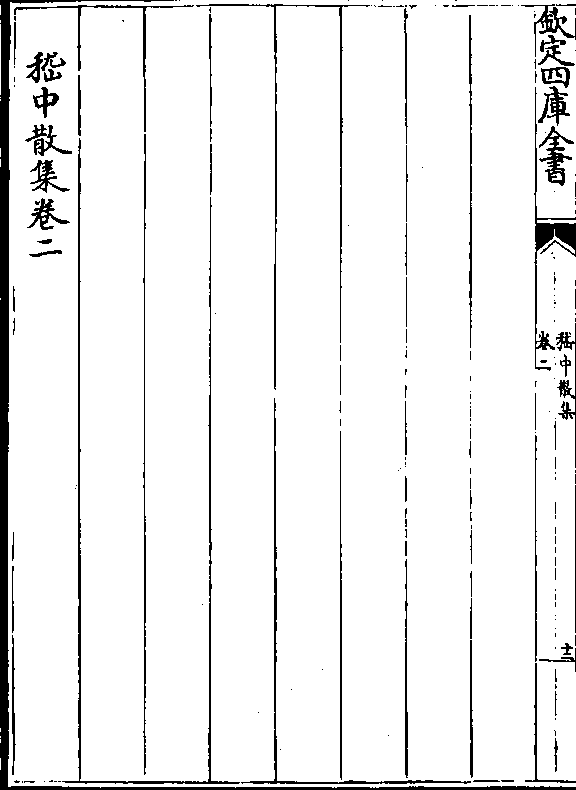 欽定四庫全書
嵇中散集
卷二
十二
嵇中散集卷二